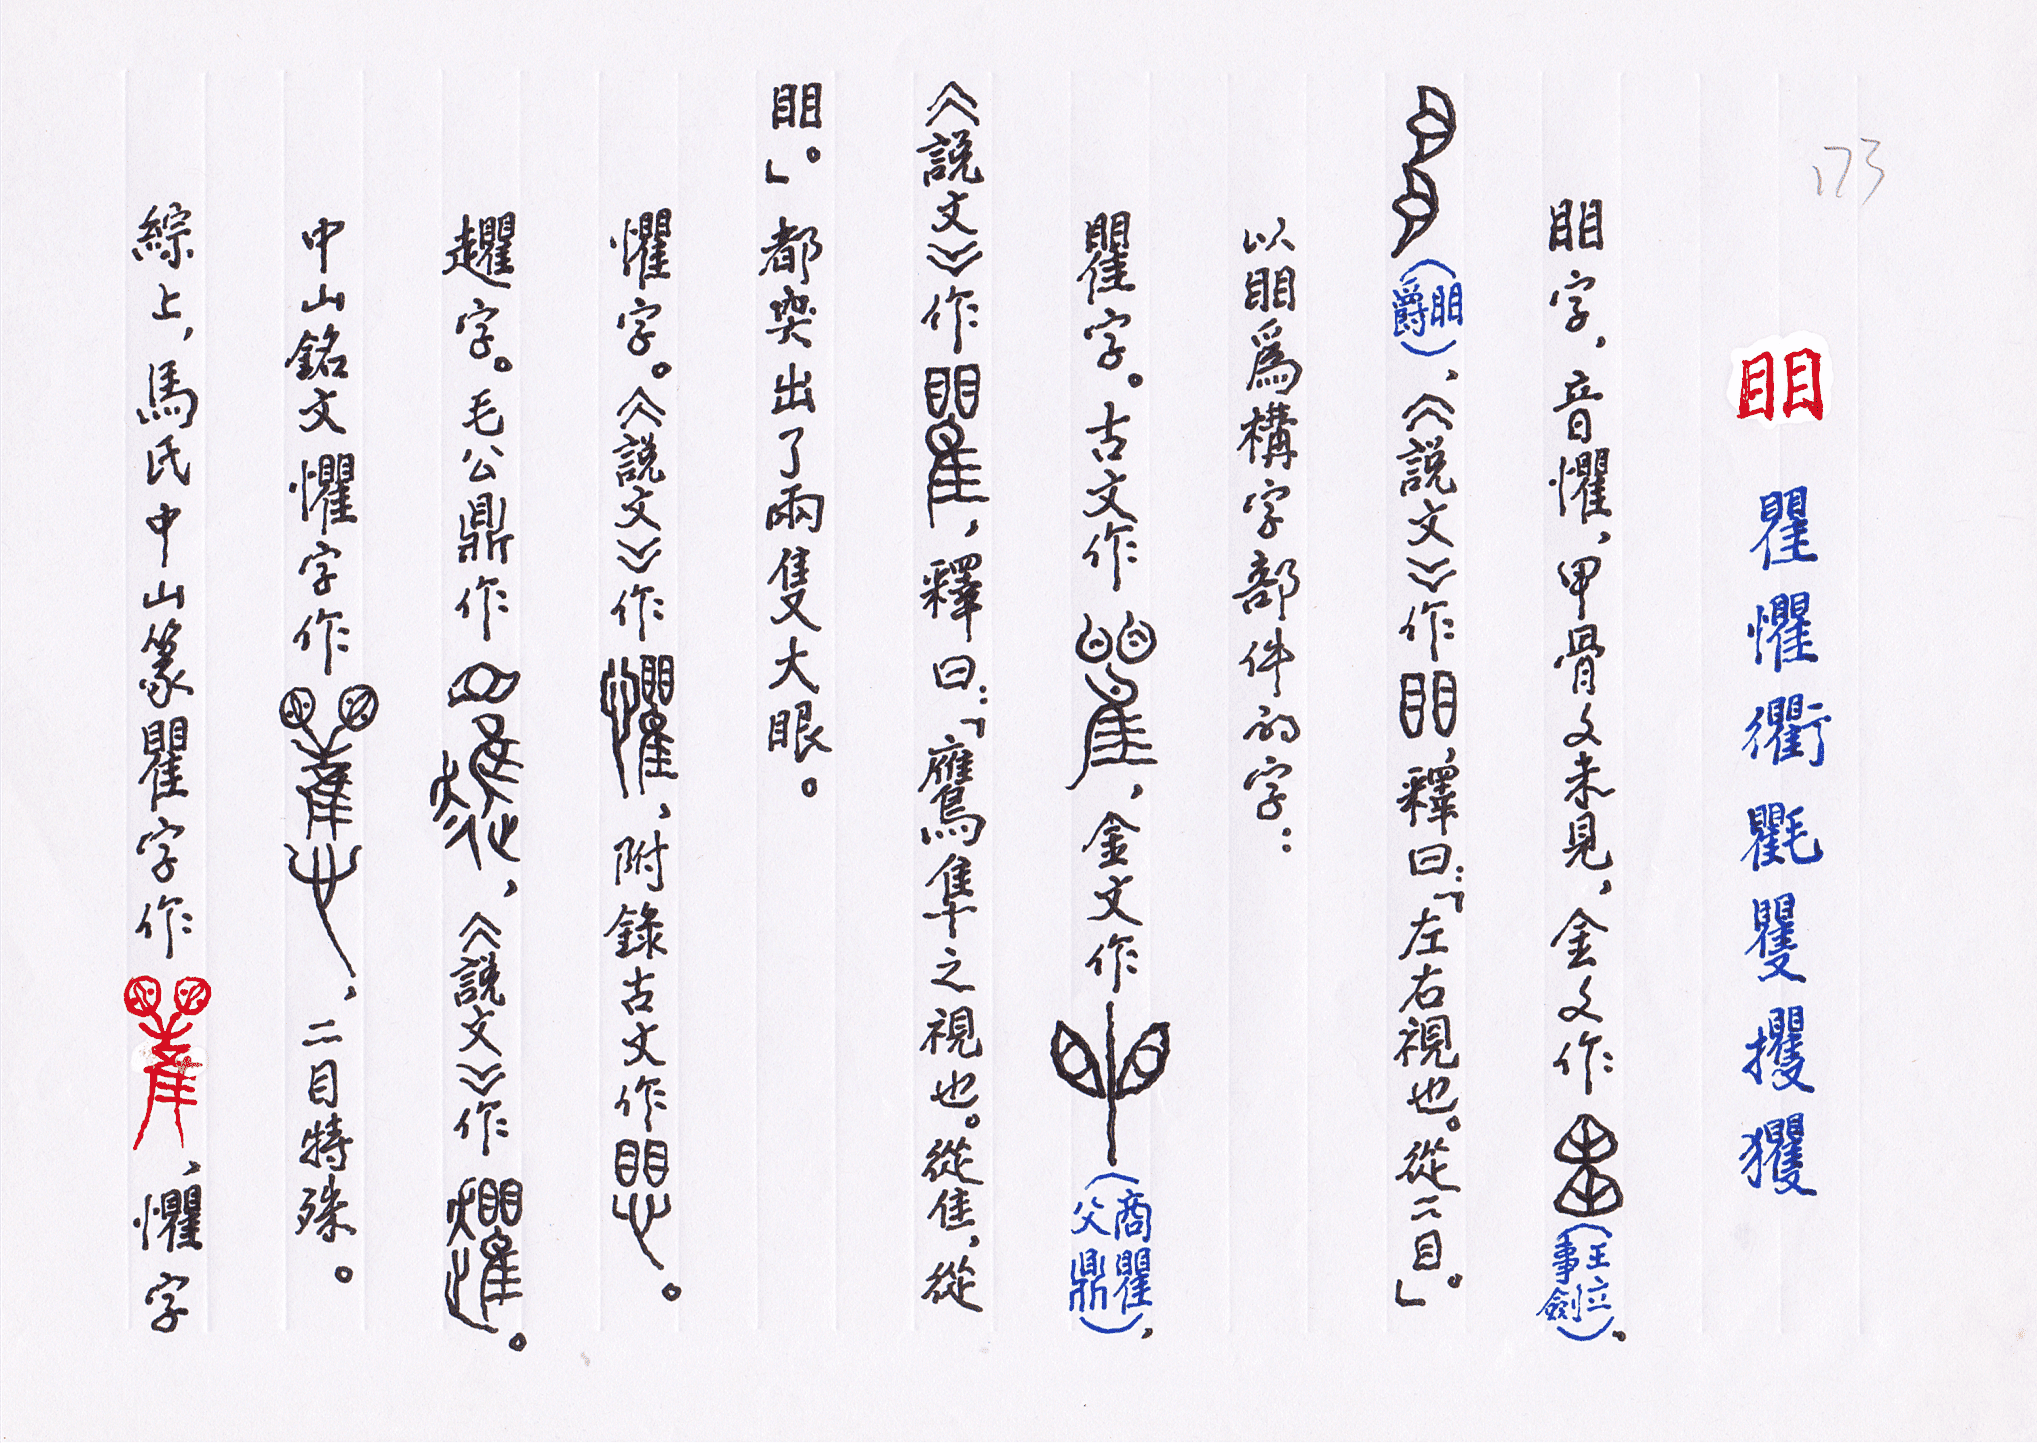 173
䀠 瞿 懼 衢 氍 矍 攫 玃
䀠字，音懼，甲骨文未見，金文作（王立事劍）。
（䀠爵），《説文》作䀠，釋曰：「左右視也。從二目。」
以䀠爲構字部件的字：
瞿字。古文作，金文作（商瞿父鼎），
《説文》作瞿，釋曰：「鷹隼之視也。從隹，從
䀠。」都突出了兩隻大眼。
懼字。《説文》作懼，附錄古文作。
趯字。毛公鼎作，《説文》作。
中山銘文懼字作，二目特殊。
綜上，馬氏中山篆瞿字作，懼字